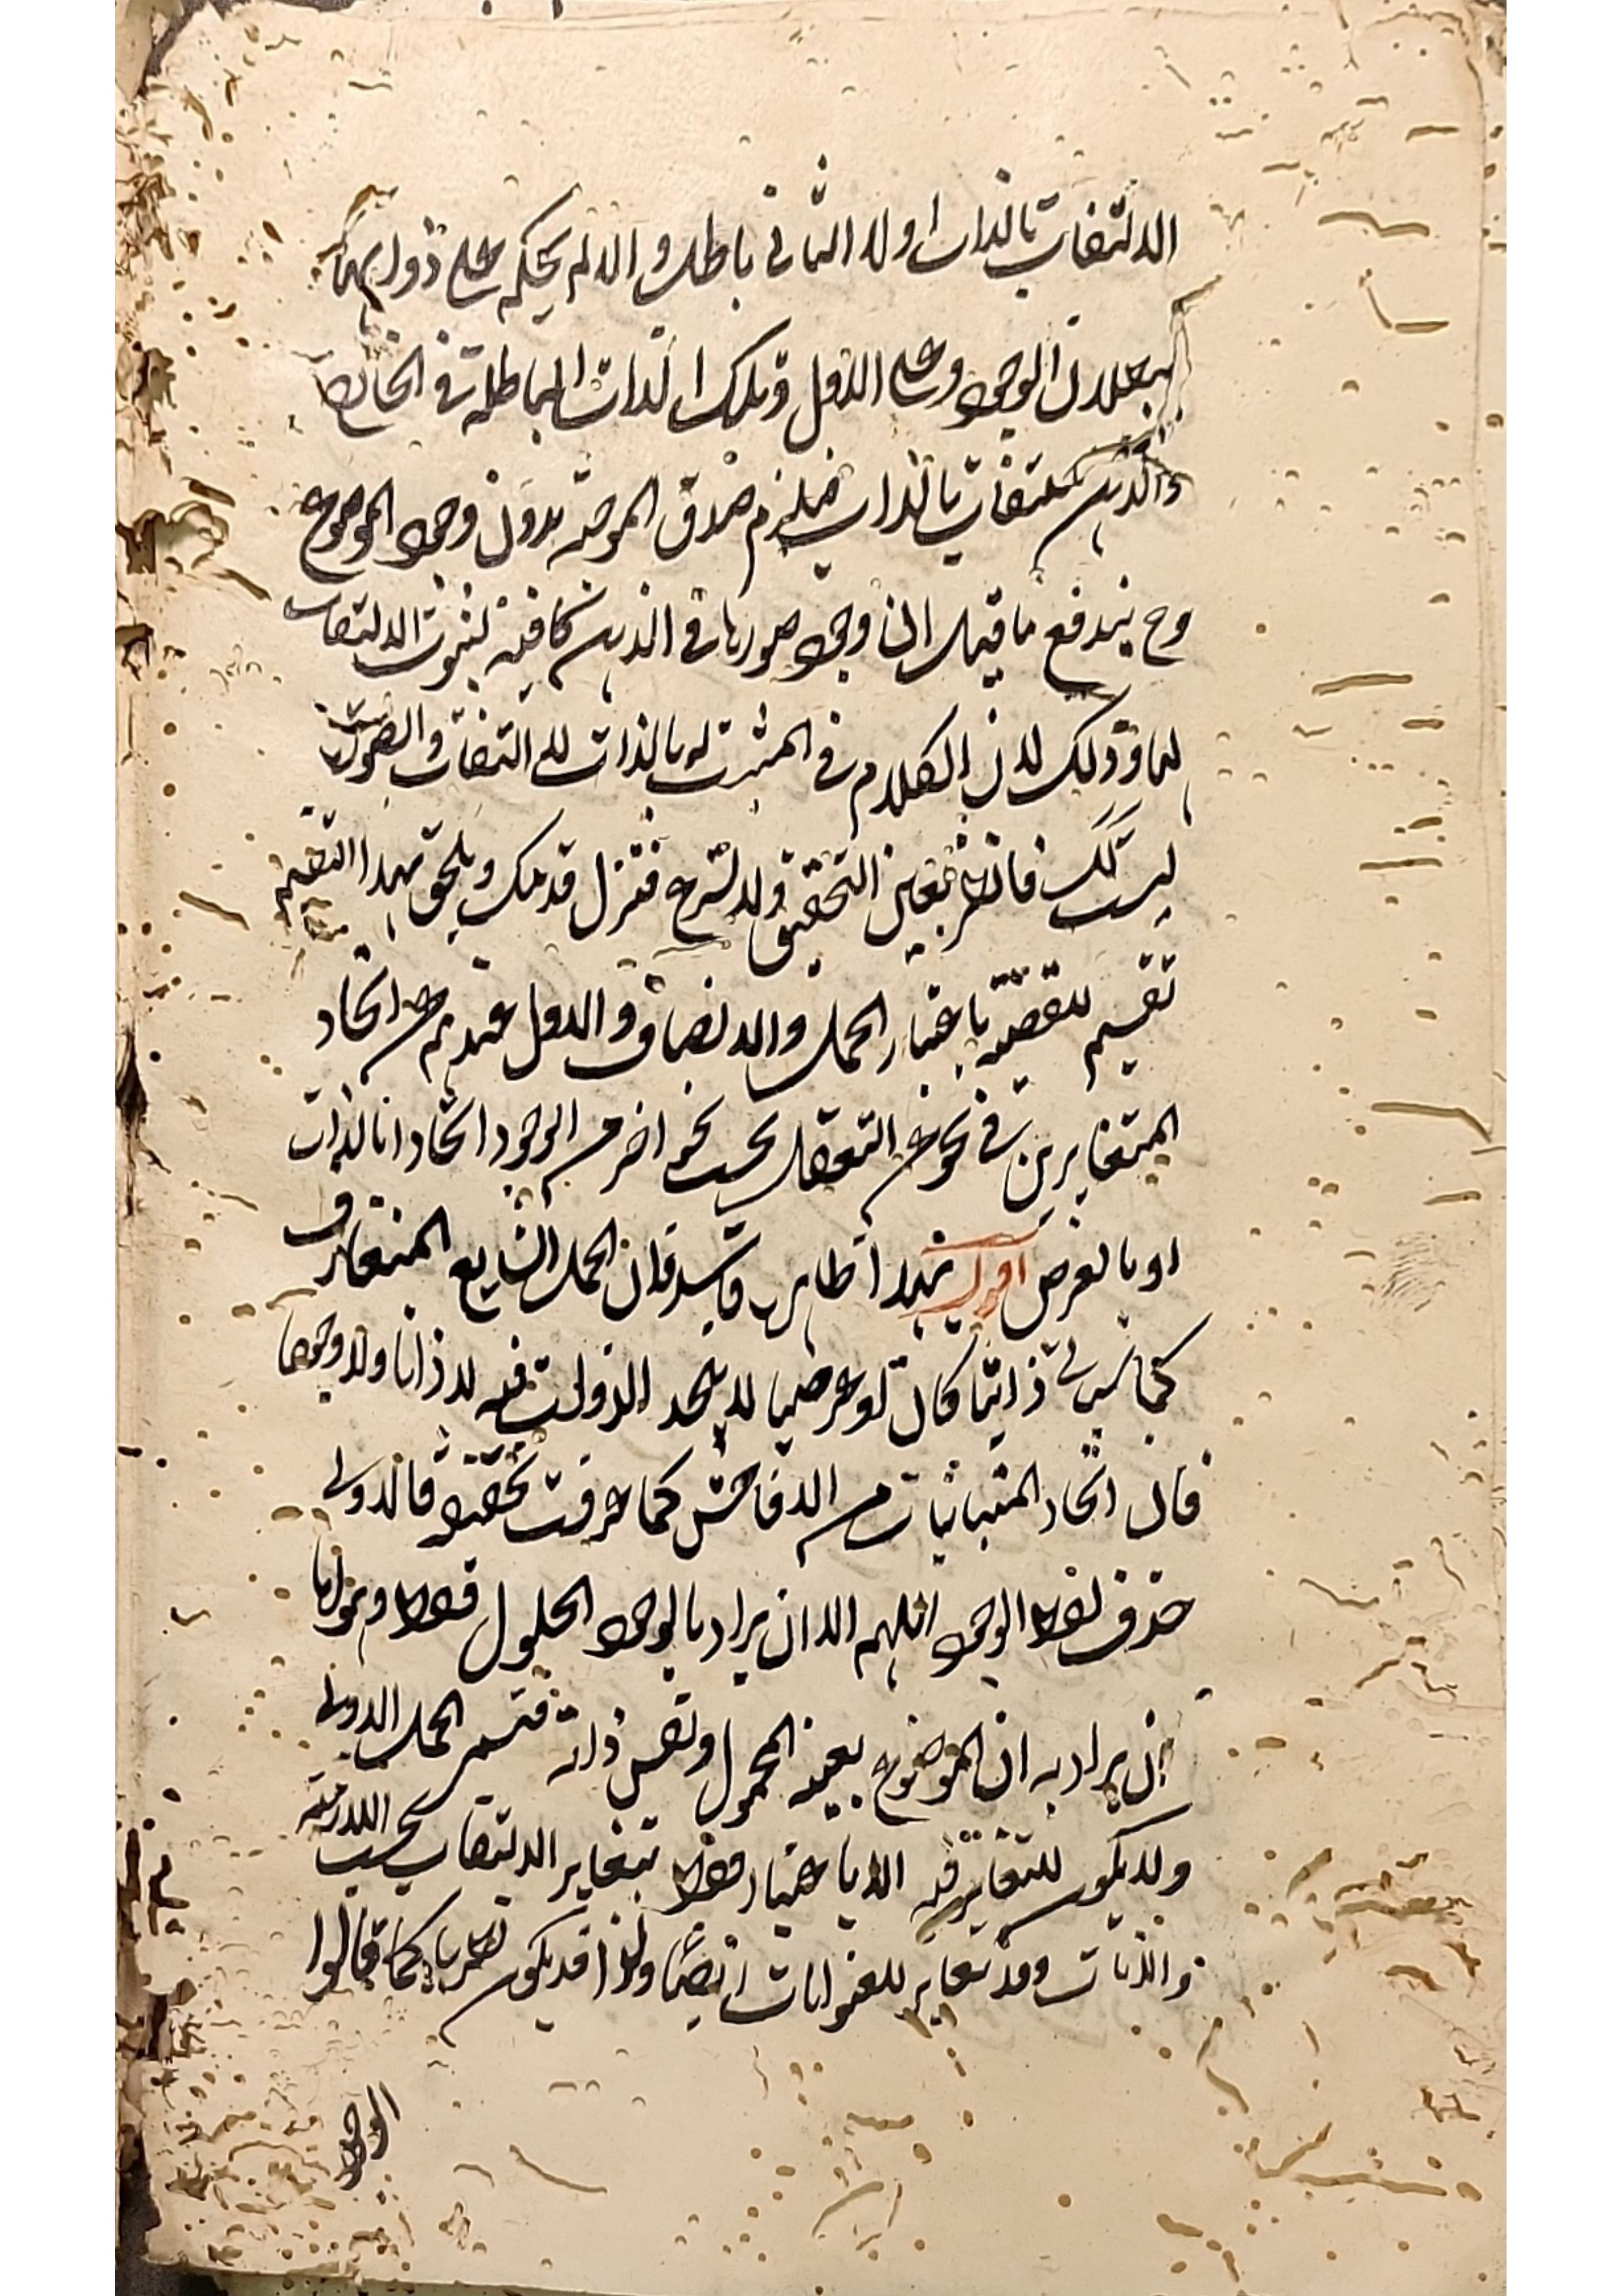 الالتفات بالذات اولا الثاني باطل والا لم يحكم على ذواتهما
ببطلان الوجود وعلى الاول وتلك الذات الباطلة في الخارج
والذهن ملتفات بالذات فيلزم صدق الموجبة بدون وجود الموضوع
وح يندفع ما قيل ان وجود صورها في الذهن كافية لثبوت الالتفات
لها وذلك لان الكلام في المثبت له بالذات للالتفات والصورة
ليست كك فانظر بعين التحقيق ولا تسرع فتزل قدمك ويلحق بهذا التقسيم
تقسيم للقضية باعتبار الحمل والاتصاف والاول عندهم اتحاد
المتغايرين في نحو من التعقل بحسب نحو اخر من الوجود اتحادا بالذات
او بالعرض اقول هذا ظاهر فان الحمل الشايع المتعارف
ذاتيا كان او عرضيا لا يتحد الاوليت فيه لا ذاتا ولا وجودا
فان اتحاد المتباينات من الافاحش كما عرفت تحقيقه فالاولى
حذف لفظ الوجود اللهم الا ان يراد بالوجود الحلول فقط وهو اما
ان يراد به ان الموضوع بعينه المحمول ونفس ذاته فتسمى الحمل الاولى
ولا يكون للتغاير فيه الا باعتبار فقط بتغاير الالتفات بحسب
والذات وقد تغاير للعنوانات ايضا ولذا قد يكون نظريا كما قالوا
الوجود